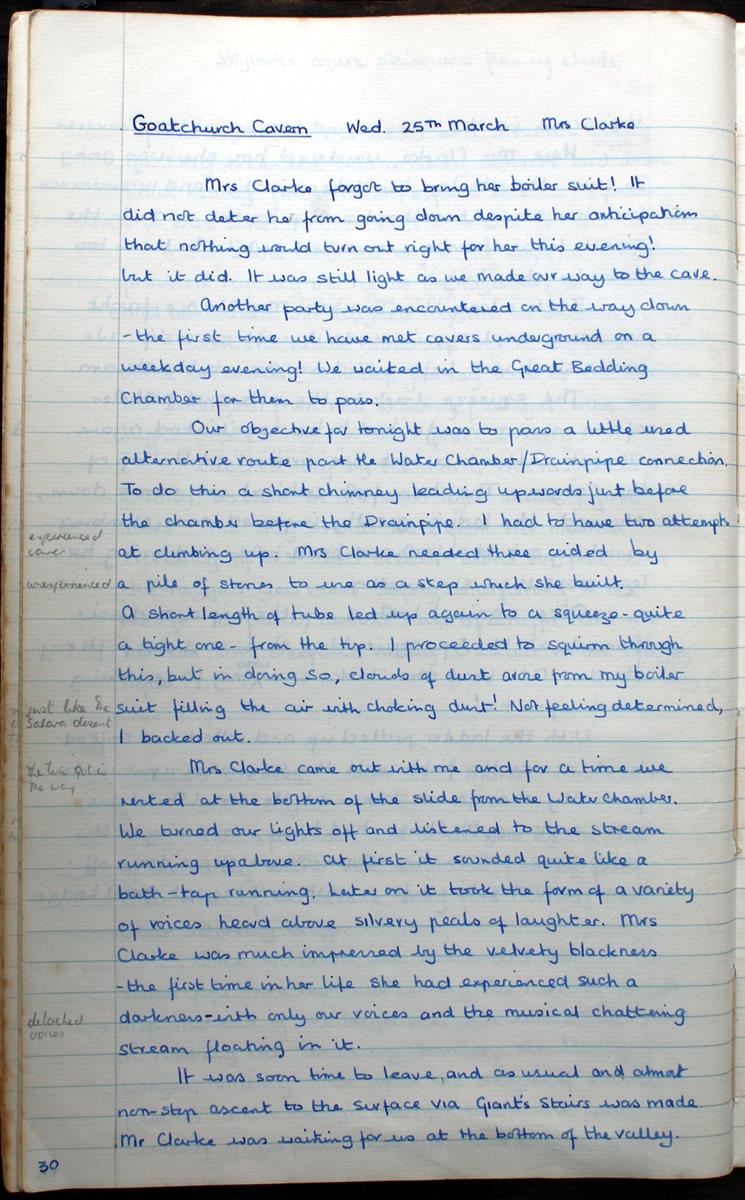 Goatchurch Cavern Wed. 25Th March Mrs Clarke
Mrs Clarke forgot to bring her boiler suit! It
did not deter he from going down despite her anticipation
that nothing would turn out right for her this evening!
but it did. It was still light as we made our way to the cave.
Another party was encountered on the way down
- the first time we have met cavers underground on a
weekday evening! We waited in the Great Bedding
Chamber for them to pass.
Our objective for tonight was to pass a little used
alternative route past the Water Chamber/Drainpipe connection.
To do this a short chimney leading upwards just before
the chamber before the Drainpipe. I had to have two attempts
experienced
caver
at climbing up. Mrs Clarke needed three aided by
unexperienced
a pile of stones to use as a step which she built.
A short length of tube led up again to a squeeze - quite
a tight one - from the top. I proceeded to squirm through
this, but in doing so, clouds of dust arose from my boiler
just like the
Sahara desert
suit filling the air with choking dust! Not feeling determined,
I backed out.
the way
Mrs Clarke came out with me and for a time we
rested at the bottom of the slide from the Water Chamber.
We turned our lights off and listened to the stream
running up above. At first it sounded quite like a
bath-tap running. Later on it took the form of a variety
of voices heard above silvery peals of laughter. Mrs
Clarke was much impressed by the velvety blackness
- the first time in her life she had experienced such a
darkness - with only our voices and the musical chattering
detached
voices
stream floating in it.
It was soon time to leave, and as usual and almost
non-stop ascent to the surface via Giant's Stairs was made.
Mr Clarke was waiting for us at the bottom of the valley.
30